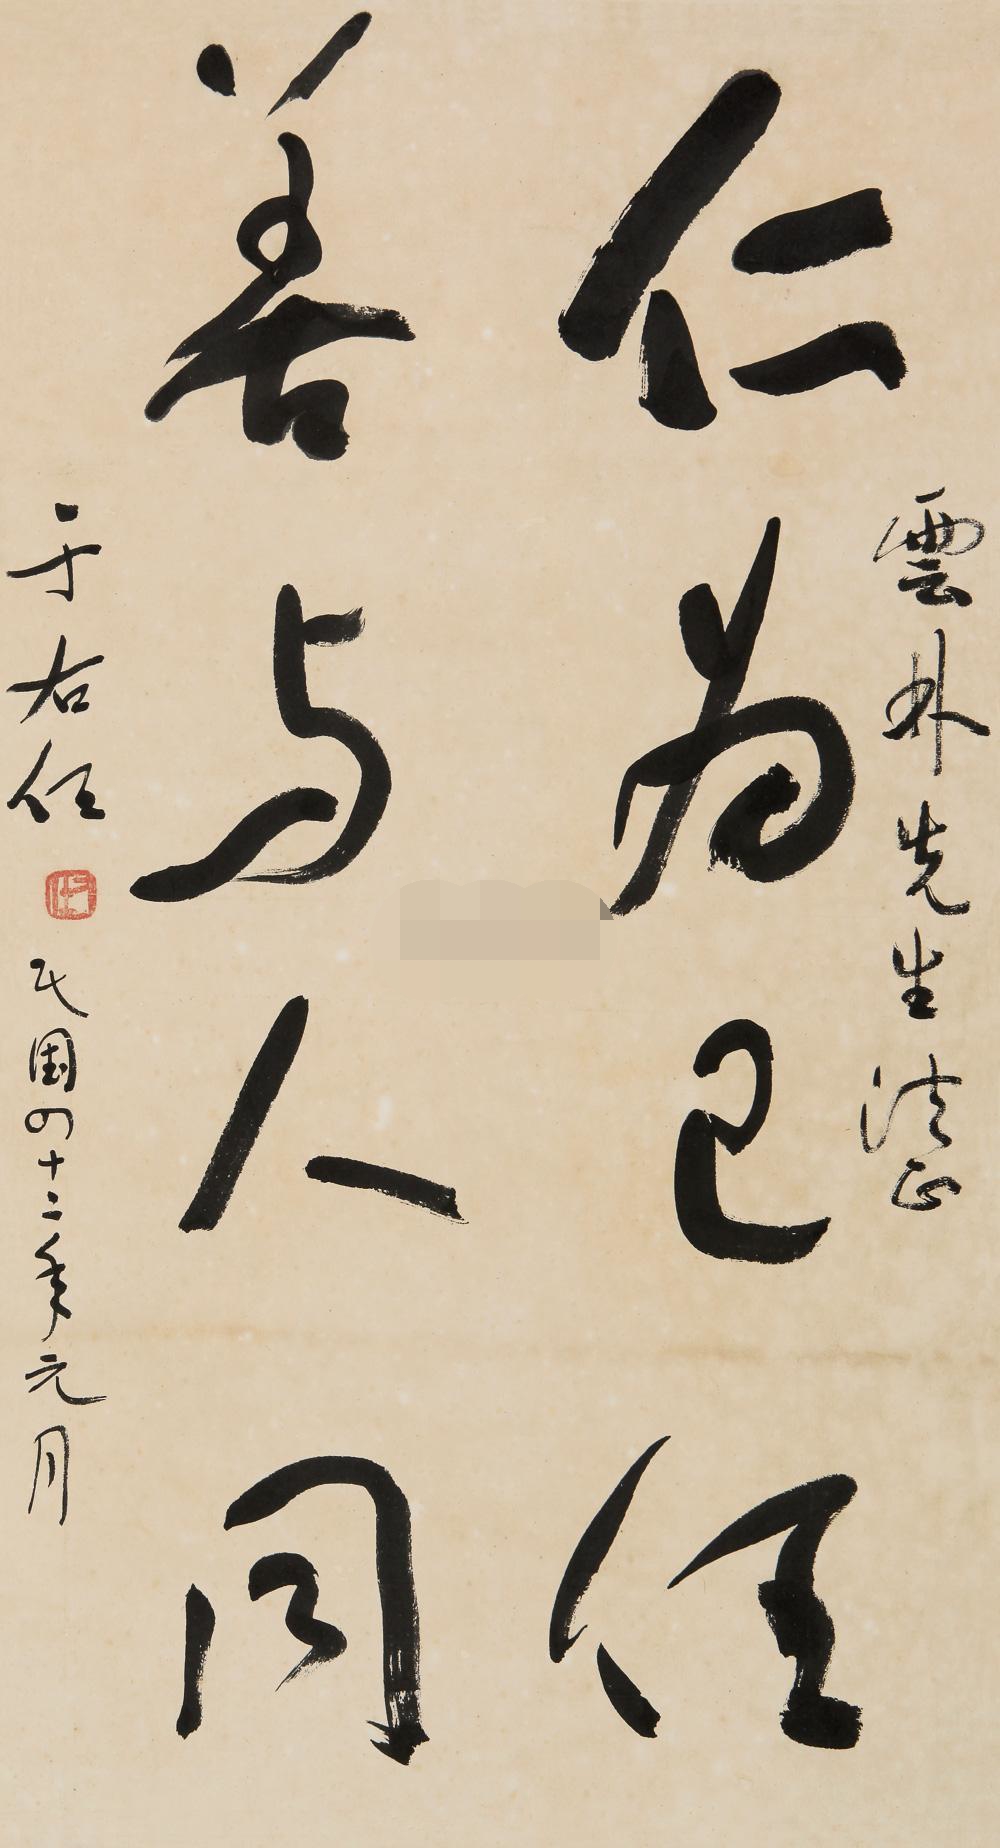 雲外先生法正
仁為己任
善与人同
于右任
民国四十二年元月